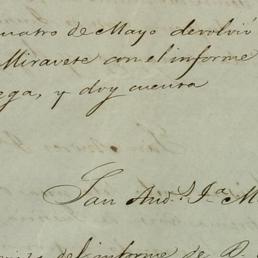 cuatro de Mayo devolvió
Miravete con el informe
ega, y doy cuenta
San And.s J.a M
del informe de D.